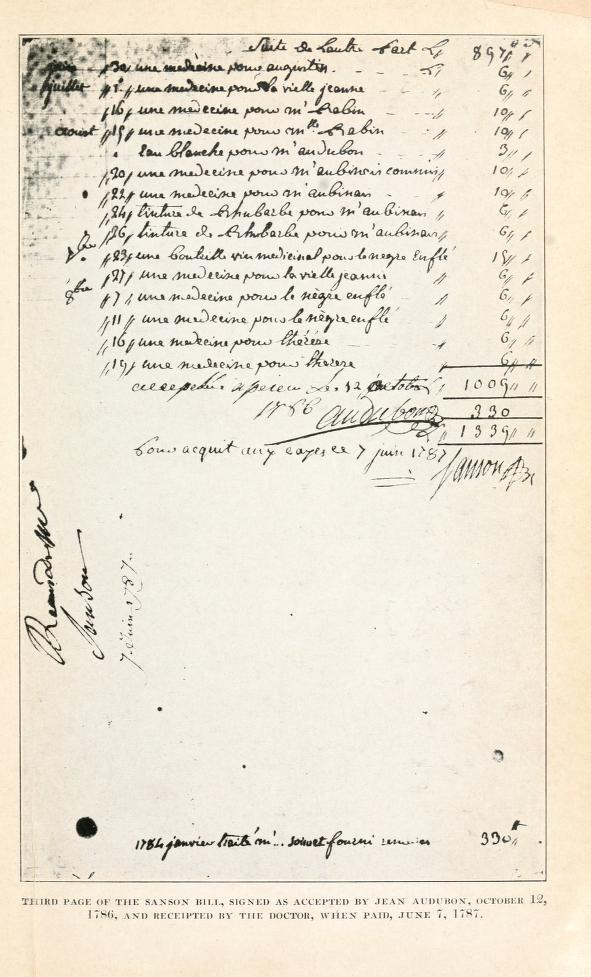 Suite de Lautre Part 897
juin 30 une medecine pour augustin 6
juillet 1 une medecine pour la vielle jeanne 6
16 une medecine pour mr Rabin 10
aoust 15 une medecine pour mlle Rabin 10
Eau blanche pour m audubon 3
20 une medecine pour mr aubinais commis 10
22 une medecine pour mr aubinais 10
24 tinture de Rhubarbe pour mr aubinais 6
26 tinture de Rhubarbe pour mr aubinais 6
7bre 23 une bouteille vin medicinal pour le negre Enflé 15
27 une medecine pour la vielle jeanne 6
8bre 7 une medecine pour le nègre enflé 6
11 une medecine pour le nègre enflé 6
16 une medecine pour thérése 6
19 une medecine pour therese 6
Le 12 octobre 1009
1786 audubon 330
1339
Pour acquit aux cayes ce 7 juin 1787
Sanson
Sanson
7 Juin 1787
1784 janvier traité mr fourni 330
THIRD PAGE OF THE SANSON BILL, SIGNED AS ACCEPTED BY JEAN AUDUBON, OCTOBER 12,
1786, AND RECEIPTED BY THE DOCTOR, WHEN PAID, JUNE 7, 1787.